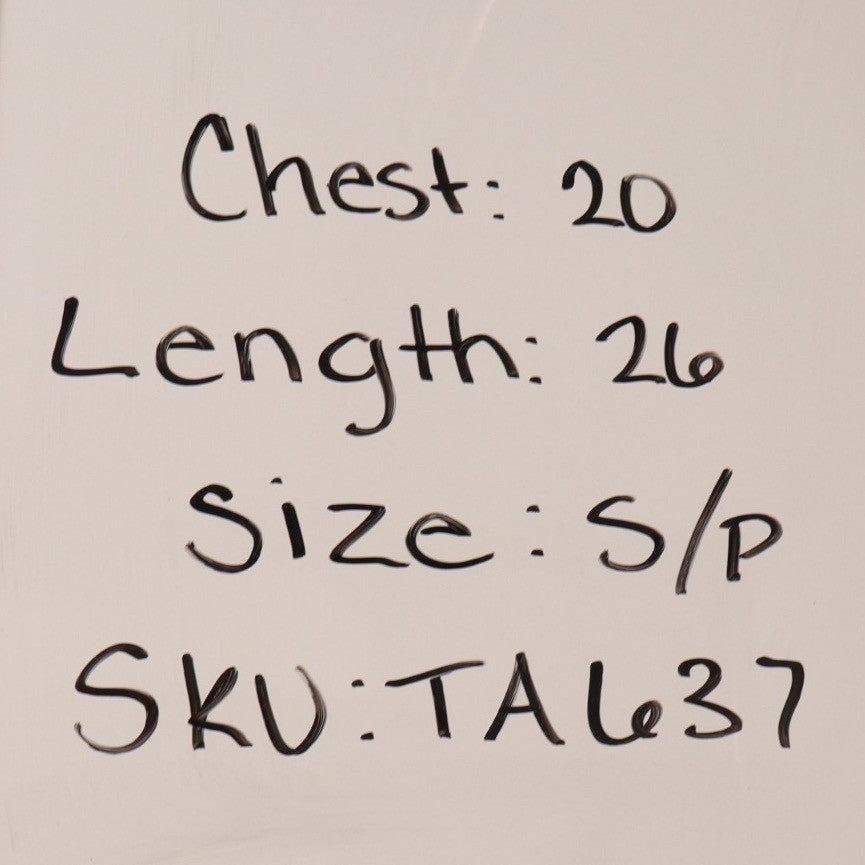 Chest: 20
Length: 26
Size: S/P
SKU: TA637